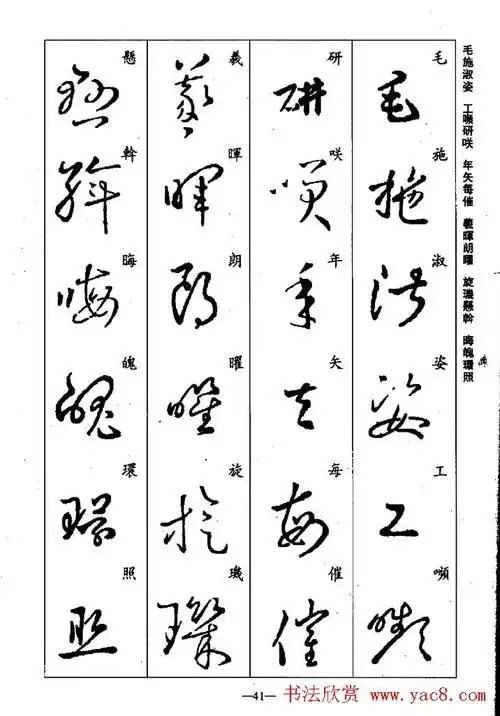 毛施淑姿 工嚬研咲 年矢每催 羲暉朗曜 旋璣懸斡 晦魄環照
毛施淑姿工嚬
研咲年矢每催
羲暉朗曜旋璣
懸斡晦魄環照
—41—
书法欣赏 www.yac8.com